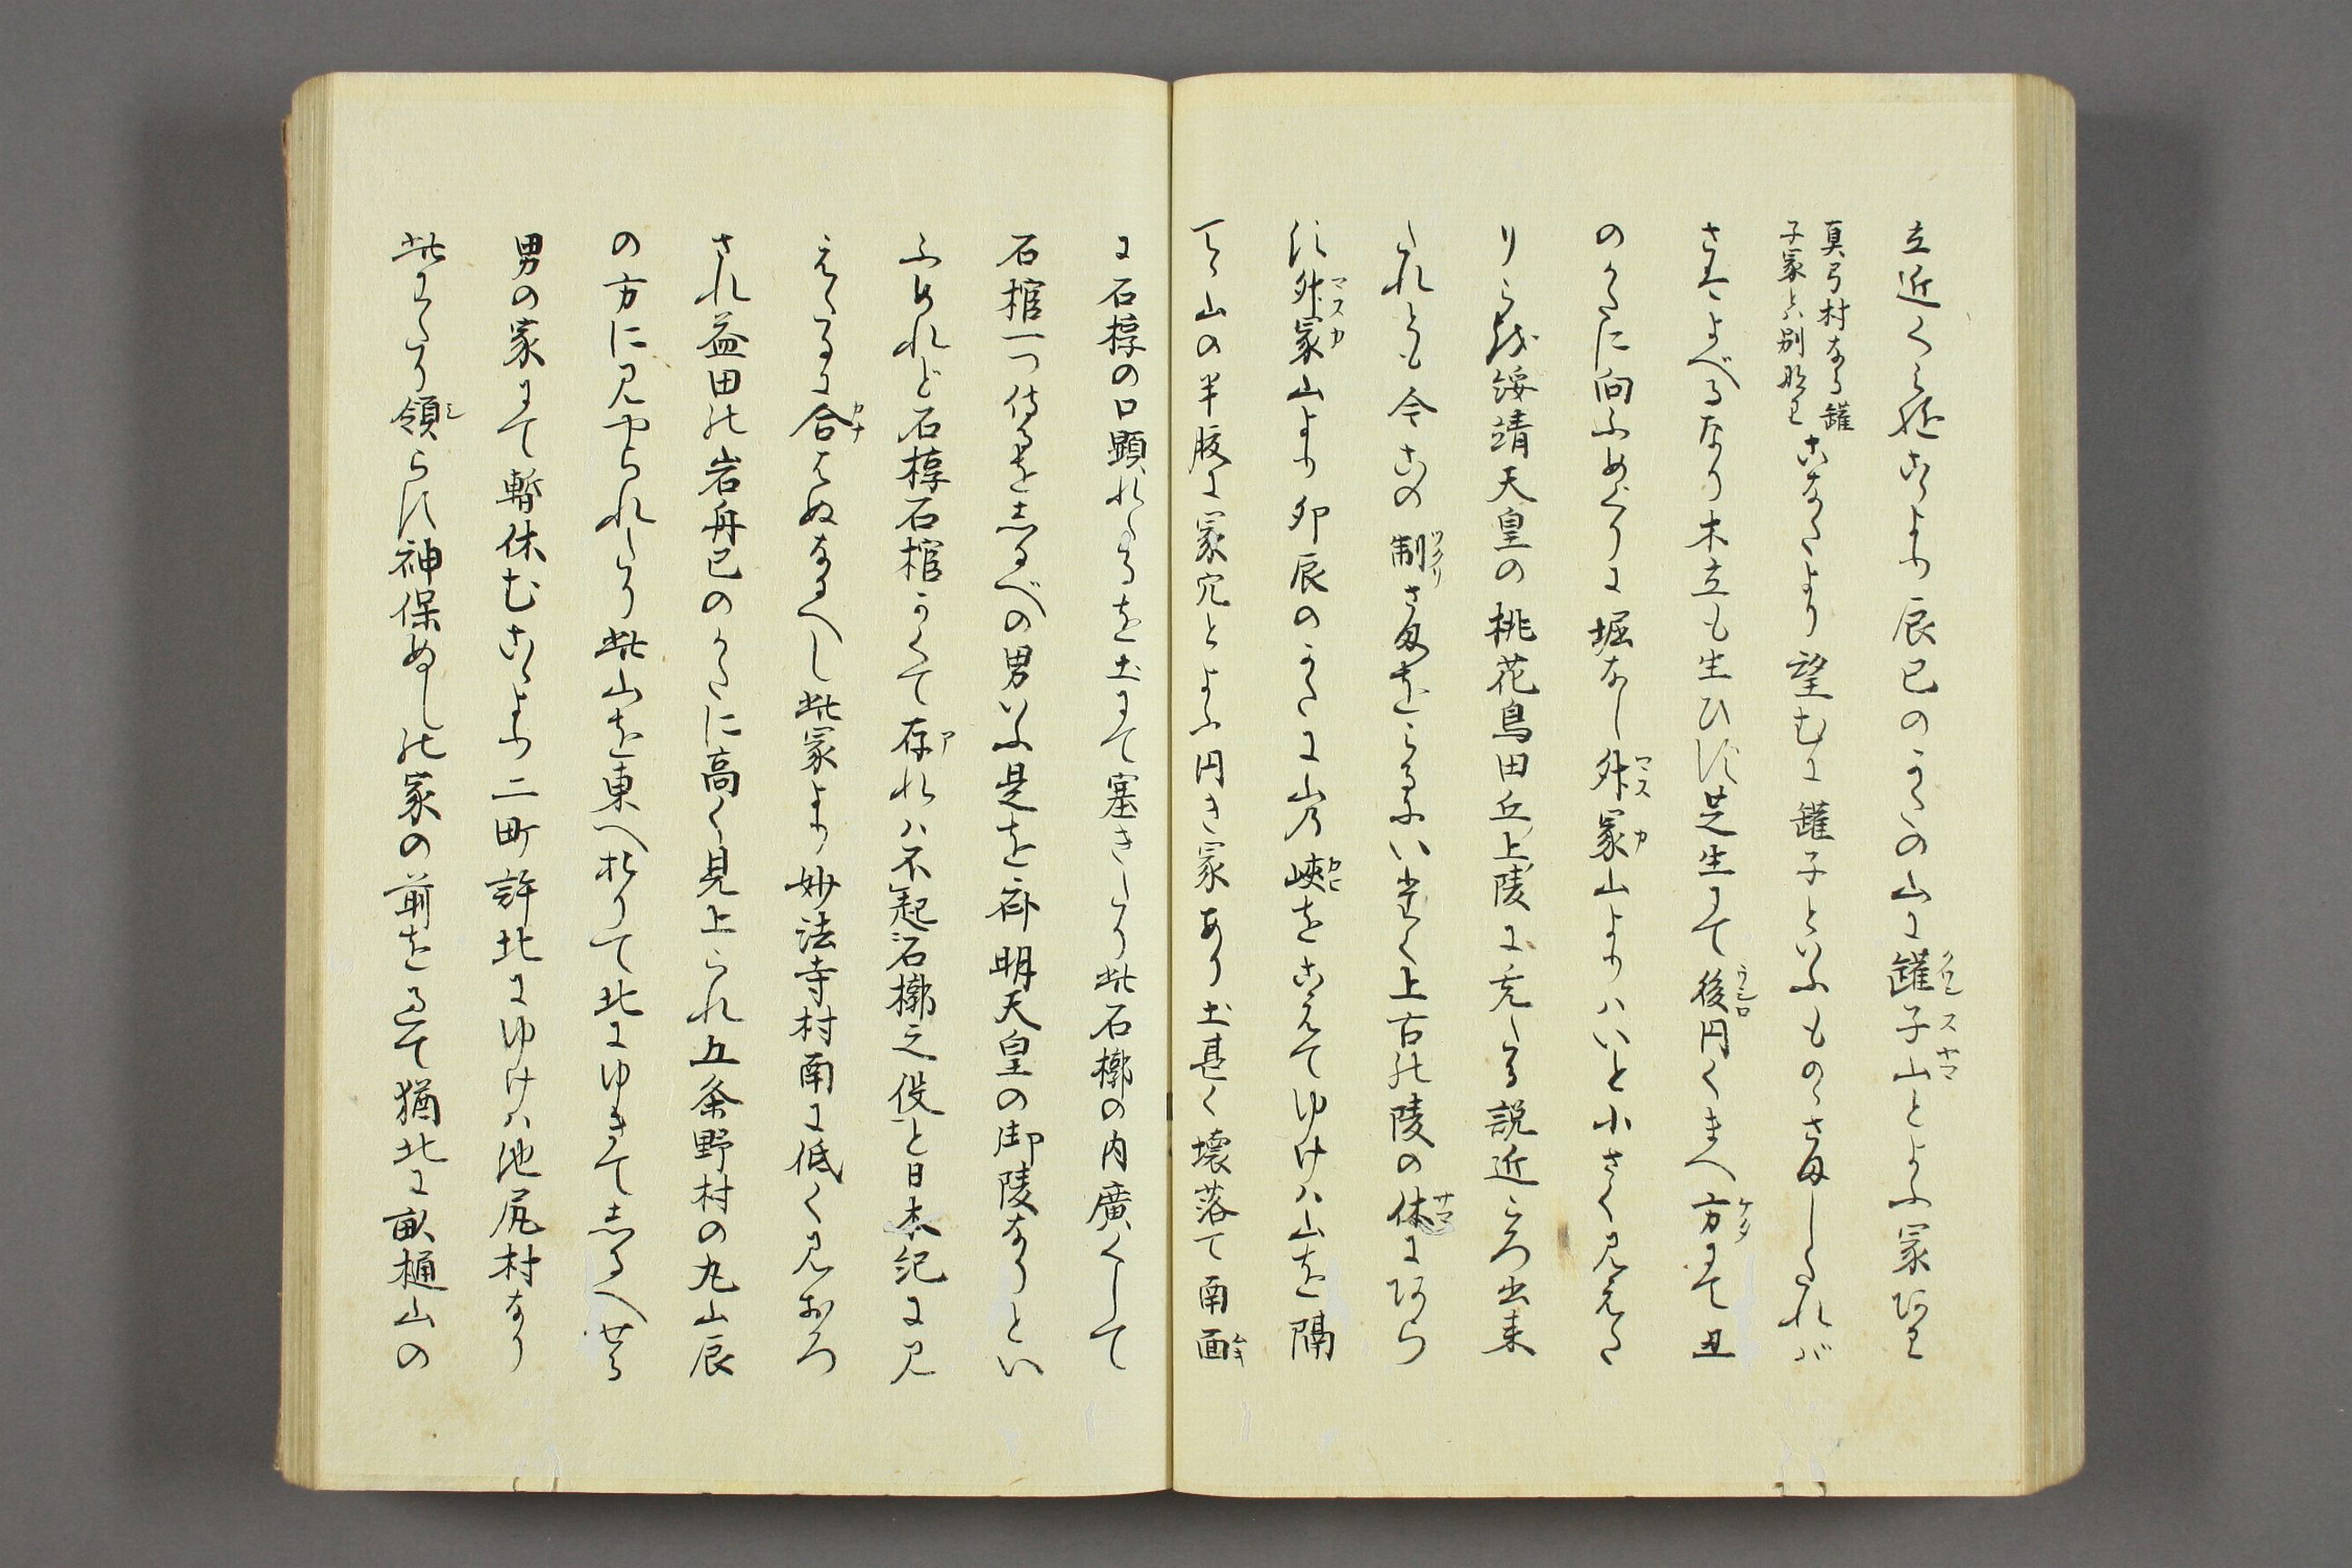 立近くらねこゝより辰巳のかたの山に罐子山とよふ冢あり
真弓村なる罐
子冢とハ別なり
こなたより望むに罐子といふものゝさましたれバ
さはよべるなり木立も生ひす芝生にて後円くまへ方にて丑
のかたに向ふめくりに堀なし舛冢山よりハいと小さく見えた
りこを綏靖天皇の桃花鳥田丘上陵に充たる説近ころ出来
たれとも今この制さまをみるにいたく上古の陵の休にあら
す舛冢山より卯辰のかたに山乃峽をこえてゆけハ山を隔
てゝ山の半腹に冢穴とよふ円き冢あり土甚く壊落て南面
に石椁の口顕れたるを土にて塞きたり此石槨の内廣くして
石棺一つ侍るをしるべの男いふ是を斉明天皇の御陵なりとい
ふめれど石椁石棺かくて存れハ不起石槨之役と日本紀に見
えたるに合はぬなるへし此冢より妙法寺村南に低く見おろ
され益田の岩舟巳のかたに高く見上られ五条野村の丸山辰
の方に見やられたり此山を東へおりて北にゆきてしるへせる
男の家にて暫休むこゝより二町許北にゆけハ池尻村なり
此わたり領らす神保ぬしの家の前をすきて猶北に畝樋山の